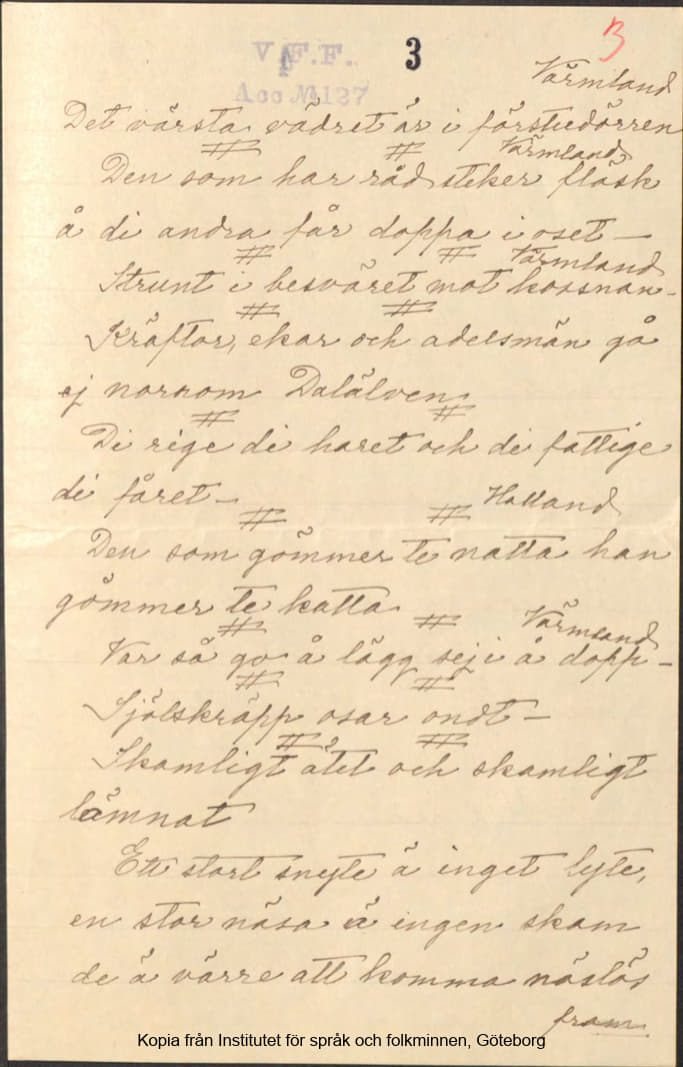 V.F.F. 3 3
Acc. N 127
Värmland
Det värsta vädret är i förstudörren
Värmland
Den som har råd steker fläsk
å di andra får doppa i oset —
Värmland
Strunt i besväret mot kossnan -
Kräftor, ekar och adelsmän gå
ej norrom Dalälven
Di rige di haret och di fattige
di fåret —
Halland
Den som gömmer te natta han
gömmer te katta
Värmland
Var så go å lägg sej i å dopp —
Sjölskräpp osar ondt —
Skamligt ätet och skamligt
lämnat
Ett stort snyte ä inget lyte,
en stor näsa ä ingen skam
de ä värre att komma näslös
fram
Kopia från Institutet för språk och folkminnen, Göteborg